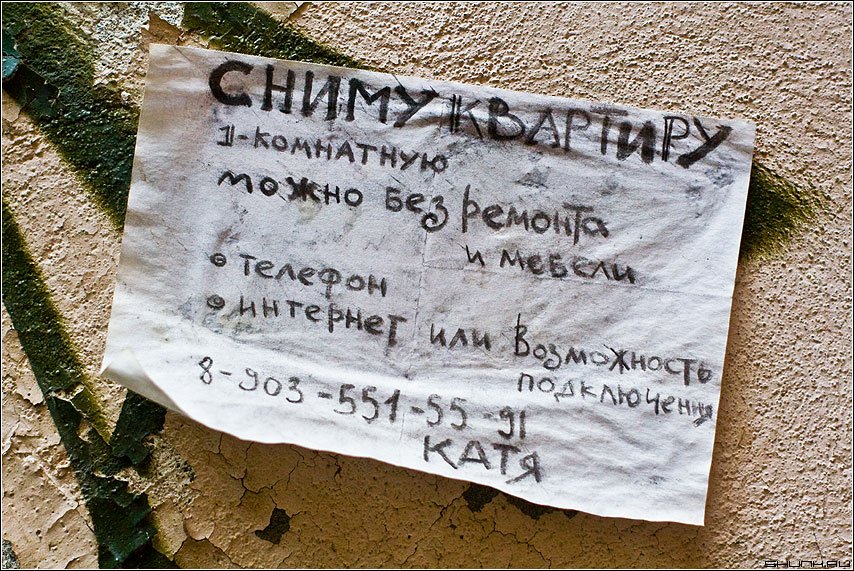 СНИМУ КВАРТИРУ
1-КОМНАТНУЮ
МОЖНО БЕЗ РЕМОНТА
И МЕБЕЛИ
ТЕЛЕФОН
ИНТЕРНЕТ ИЛИ ВОЗМОЖНОСТЬ
ПОДКЛЮЧЕНИЯ
8-903-551-55-91
КАТЯ